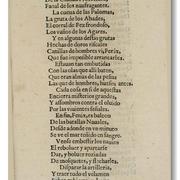 Fanal de los naufragantes.
La cueua de las Palomas,
La gruta de los Abades,
El corral de Pez frondoso,
Los vaños de los Agares.
Y en algunas destas grutas
Hechas de duros riscales
Camillas de hombres vi, Fenix,
Que fue impossible arrancarles.
Estauan tan embutidas
Con las olas que alli baten,
Que eran almas de las peñas
Las que de hombres fueron antes.
Cada cosa en si de aquestas
Encierra misterios grandes,
Y assombros contra el oluido
Por las vinientes señales.
En fin, Fenix, es balcon
De las batallas Nauales,
Desde adonde en vn minuto
Se ve el mar teñido en sangre.
Vense embestir los nauios
El reboluer y apartarse
Dar, y boluer roziadas
De mosquetes, y esconderse,
Disparar la artilleria,
Y traer todo el volumen